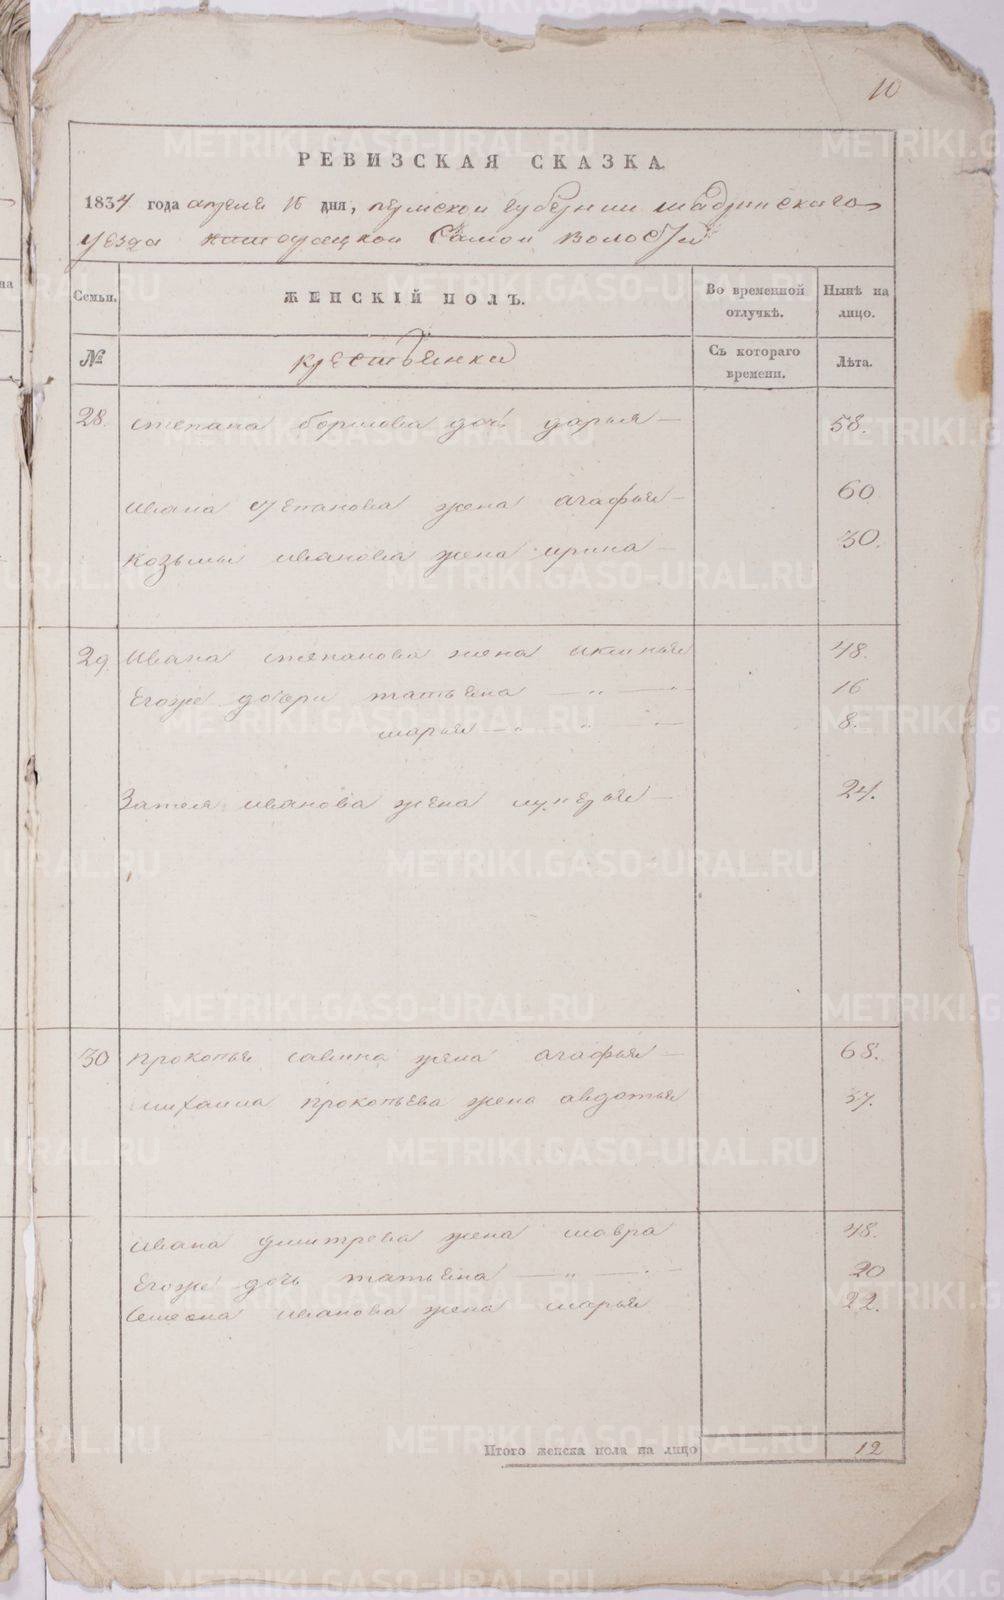 10
РЕВИЗСКАЯ СКАЗКА.
1834 года апреля 16 дня, пермской губернии шадринскаго
уезда самой волости
Семьи. ЖЕНСКІЙ ПОЛЪ. Во временной отлучкѣ. Нынѣ на лицо.
№ крестьянки Съ котораго времени. Лѣта.
28. степана дочь дарья — 58.
ивана степанова жена агафья — 60
козьмы иванова жена ирина — 30.
29. Ивана степанова жена аксинья 48.
Егоже дочери татьяна — „ — „ — 16
марья — „ — „ — 8.
иванова жена лукерья — 24.
30 прокопья савина жена агафья — 68.
михаила прокопьева жена авдотья 37.
ивана дмитрева жена мавра 48.
Егоже дочь татьяна — „ — „ — 20
Семена иванова жена марья 22.
Итого женска пола на лицо 12
METRIKI.GASO-URAL.RU